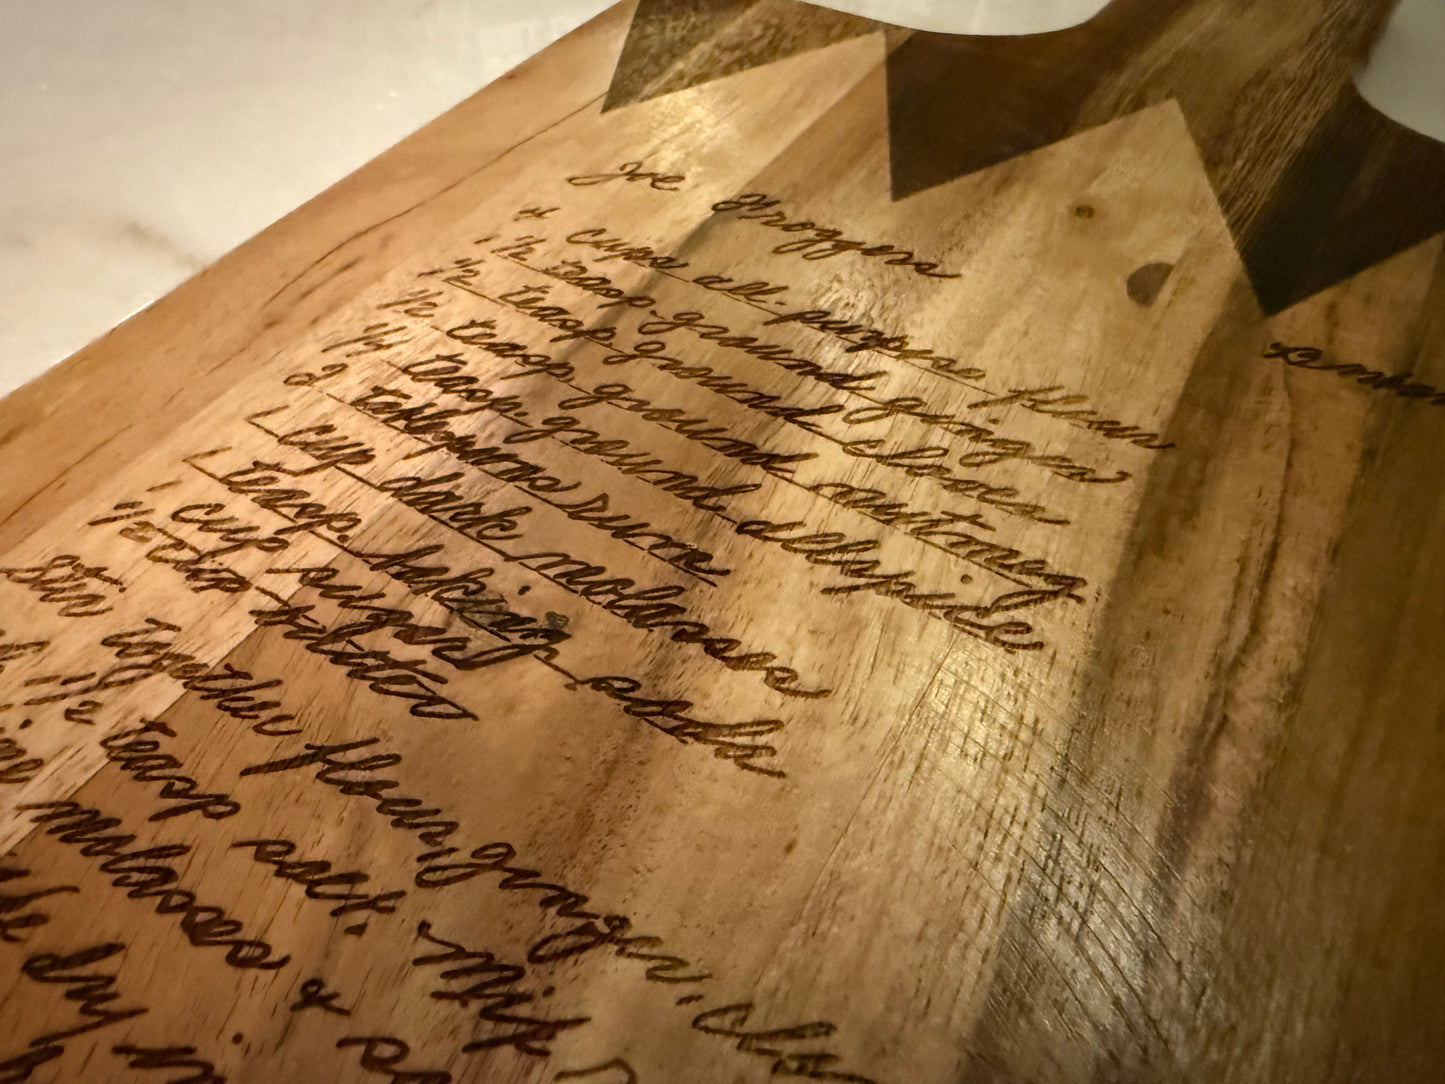 Joe Froggers
4 cups all-purpose flour
1 1/2 teasp. ground ginger
1/2 teasp ground cloves
1/2 teasp ground nutmeg
1/4 teasp. ground allspice
2 tablespoons rum
1 cup dark molasses
1 teasp. baking soda
1 cup sugar
1/2
Stir together flour, ginger,
1 1/2 teasp salt. Mix
molasses &
dry